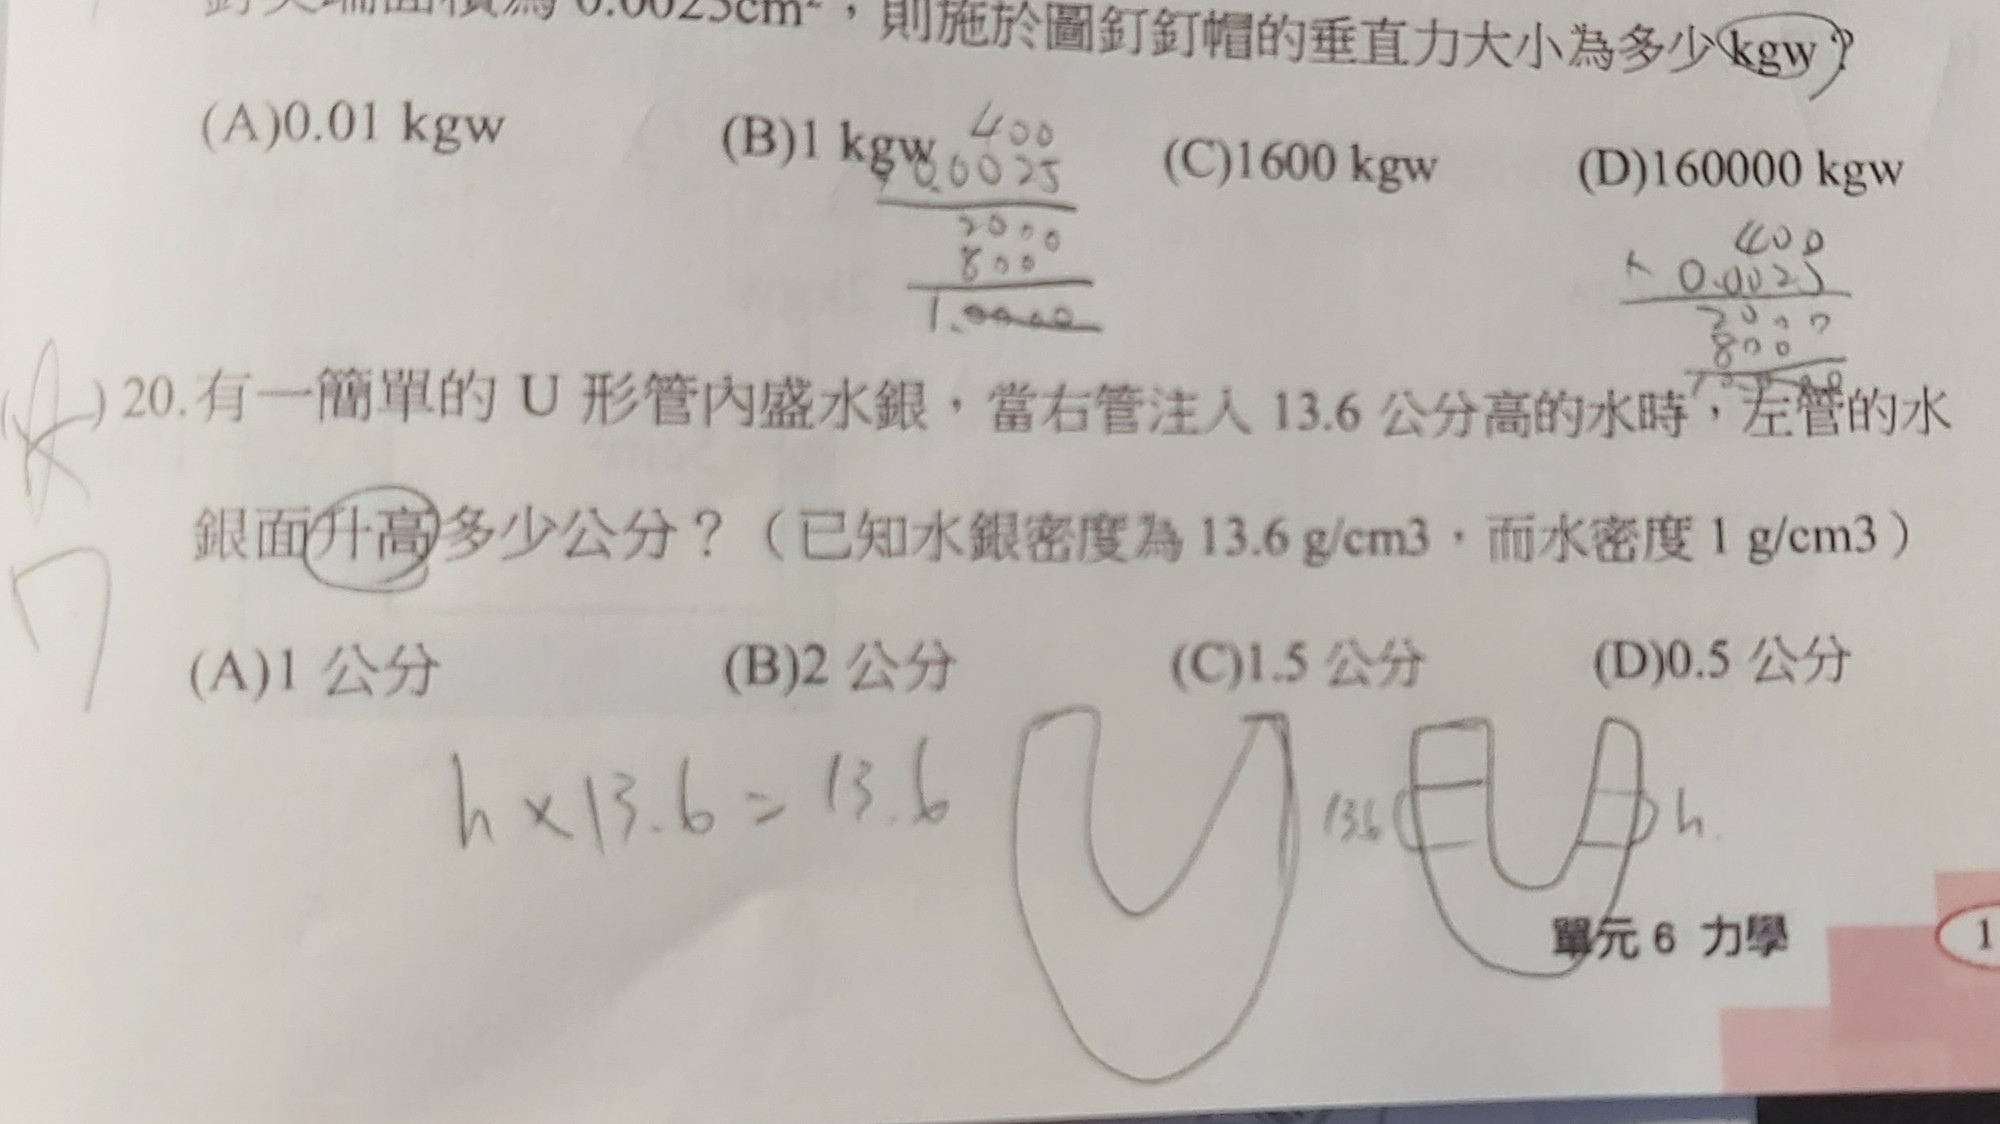 釘尖端面積為 0.0025cm²，則施於圖釘釘帽的垂直力大小為多少 kgw？
(A)0.01 kgw (B)1 kgw (C)1600 kgw (D)160000 kgw
400
0.0025
2000
800
1.0000
400
× 0.0025
2000
800
( ) 20. 有一簡單的 U 形管內盛水銀，當右管注入 13.6 公分高的水時，左管的水
銀面升高多少公分？（已知水銀密度為 13.6 g/cm3，而水密度 1 g/cm3）
(A)1 公分 (B)2 公分 (C)1.5 公分 (D)0.5 公分
h × 13.6 = 13.6
13.6 h
單元 6 力學
1